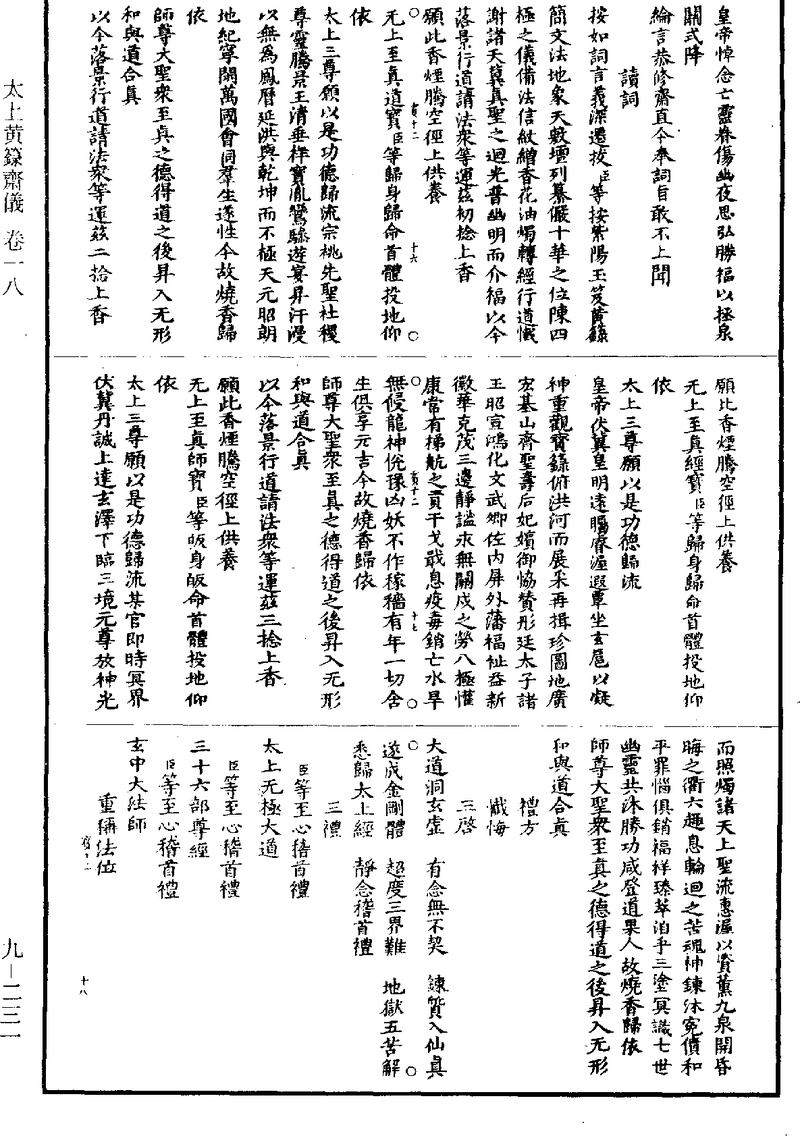 皇帝悼念亡靈眷傷幽夜思弘勝福以拯泉
關式降
綸言恭修齋直今奉詞旨敢不上聞
讀詞
按如詞言義深遷拔臣等按紫陽玉笈黃籙
簡文法地象天數壇列纂儼十華之位陳四
極之儀備法信紋繒香花油燭轉經行道懺
謝諸天冀真聖之迴光普幽明而介福以今
落景行道請法衆等運茲初捻上香
願此香煙騰空徑上供養
无上至真道寶臣等歸身歸命首體投地仰
依
太上三尊願以是功德歸流宗祧先聖社稷
尊靈騰景玉清垂祥寶胤鸞驂遊宴昇汗漫
以無為鳳曆延洪與乾坤而不極天元昭朗
地紀寧開萬國會同羣生遂性今故燒香歸
依
師尊大聖衆至真之德得道之後昇入无形
和與道合真
以今落景行道請法衆等運茲二捻上香
願此香煙騰空徑上供養
无上至真經寶臣等歸身歸命首體投地仰
依
太上三尊願以是功德歸流
皇帝伏冀皇明遠矚睿渥遐覃坐玄扈以凝
神重觀寶籙俯洪河而展采再揖珍圖地廣
宏基山齊聖壽后妃嬪御協贊彤廷太子諸
王昭宣鴻化文武卿佐內屏外藩福祉益新
徽華克茂三邊靜謐永無關戍之勞八極懽
康常有梯航之貢干戈戢息疫毒銷亡水旱
無侵龍神悅豫凶妖不作稼穡有年一切含
生俱享元吉今故燒香歸依
師尊大聖衆至真之德得道之後昇入无形
和與道合真
以今落景行道請法衆等運茲三捻上香
願此香煙騰空徑上供養
无上至真師寶臣等皈身皈命首體投地仰
依
太上三尊願以是功德歸流某官即時冥界
伏冀丹誠上達玄澤下臨三境元尊放神光
而照燭諸天上聖流惠渥以資薰九泉開昏
晦之衢六趣息輪迴之苦魂神鍊沐冤債和
平罪惱俱銷福祥臻萃洎乎三塗冥識七世
幽靈共沐勝功咸登道果人故燒香歸依
師尊大聖衆至真之德得道之後昇入无形
和與道合真
禮方
懺悔
三啓
大道洞玄虛　有念無不契　鍊質入仙真
遂成金剛體　超度三界難　地獄五苦解
悉歸太上經　靜念稽首禮
三禮
臣等至心稽首禮
太上无極大道
臣等至心稽首禮
三十六部尊經
臣等至心稽首禮
玄中大法師
重稱法位
十六
十七
十八
太上黃籙齋儀　卷一八
九－二三一